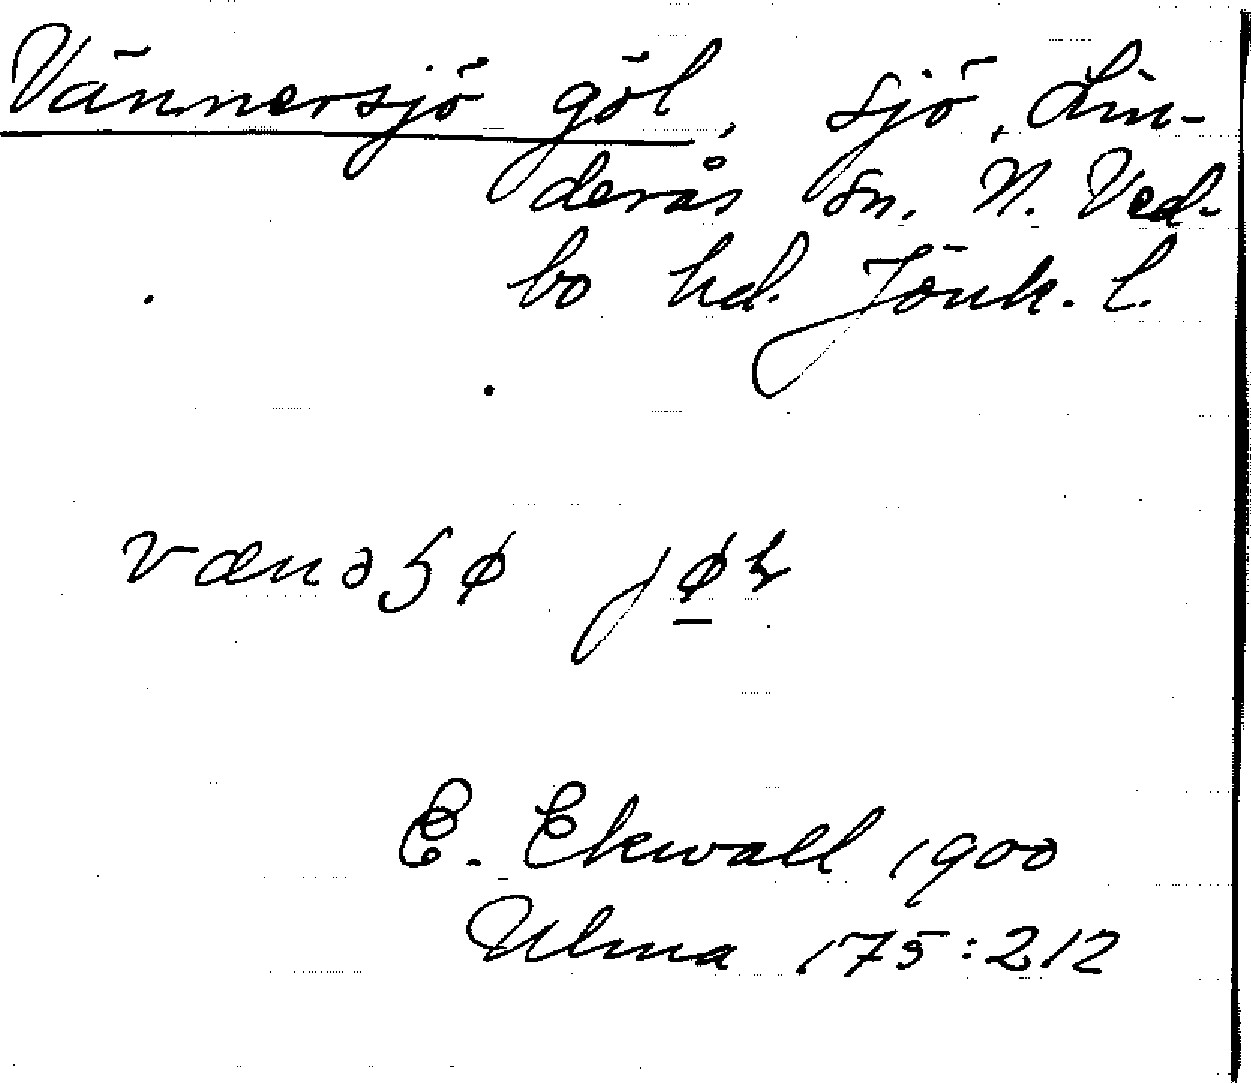 Vännersjö göl, sjö, Lin-
derås sn. N. Ved-
bo hd. Jönk. l.
E. Ekwall 1900
Ulma 175:212